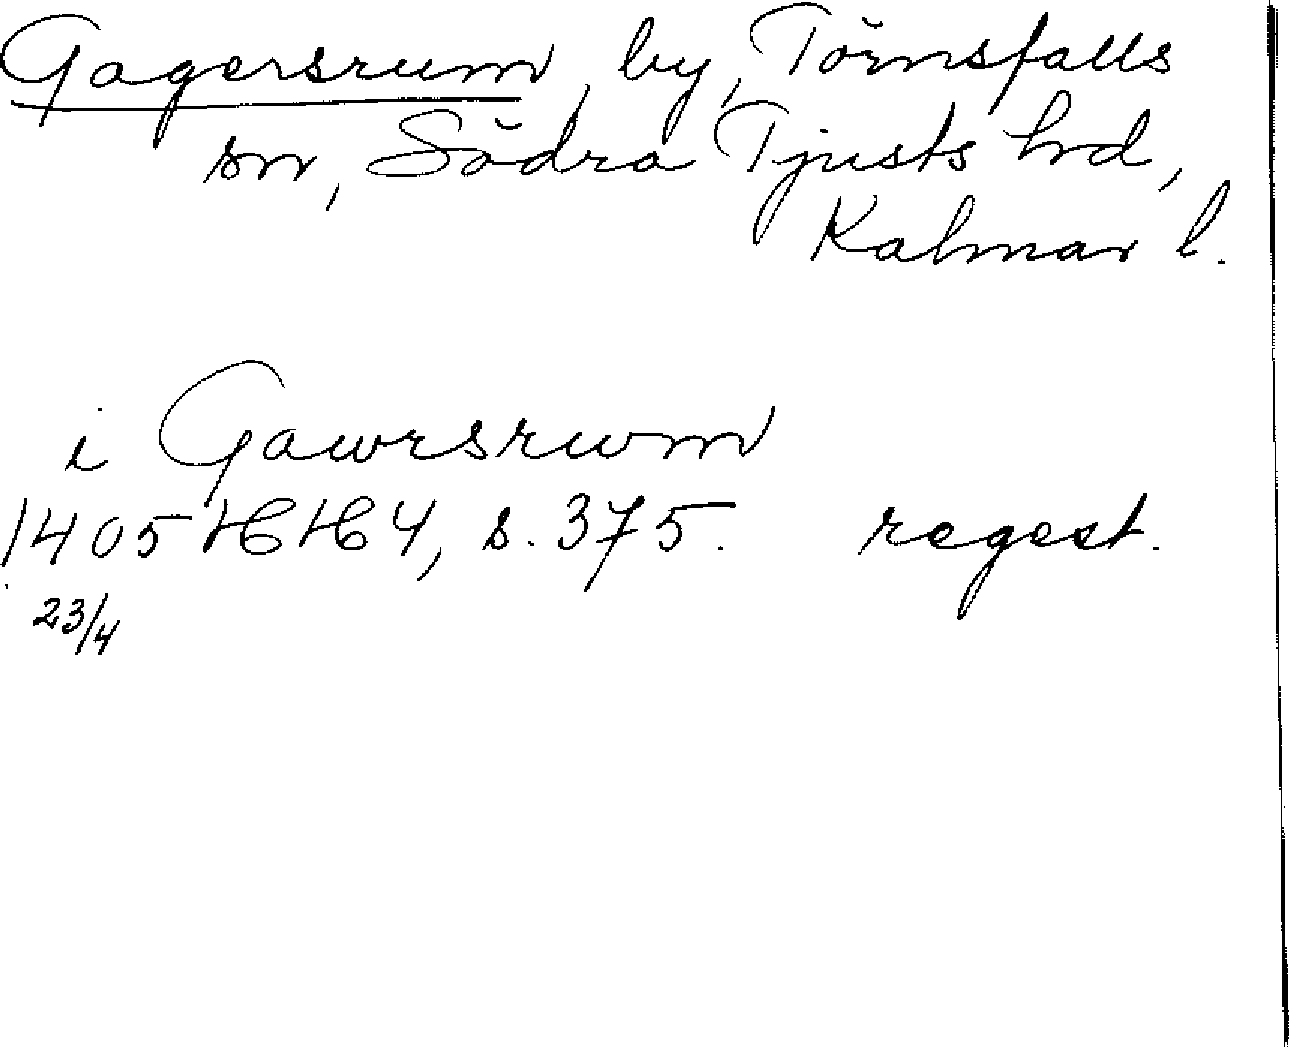 Gagersrum, by, Törnsfalls
sn, Södra Tjusts hd,
Kalmar l.
i Gawrsrwm
1405 HH 4, s. 375. regest.
23/4